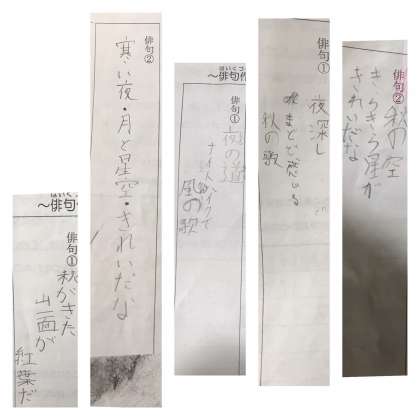 はいく
～俳句
俳句①
秋がきた
山一面が
紅葉だ
俳句②
寒い夜・月と星空・きれいだな
はいくづ
～俳句作
俳句①
夜の道
ナイトハイクで
風の歌
俳句①
夜深し
まどで
秋の歌
俳句②
秋の空
きらきら星が
きれいだな